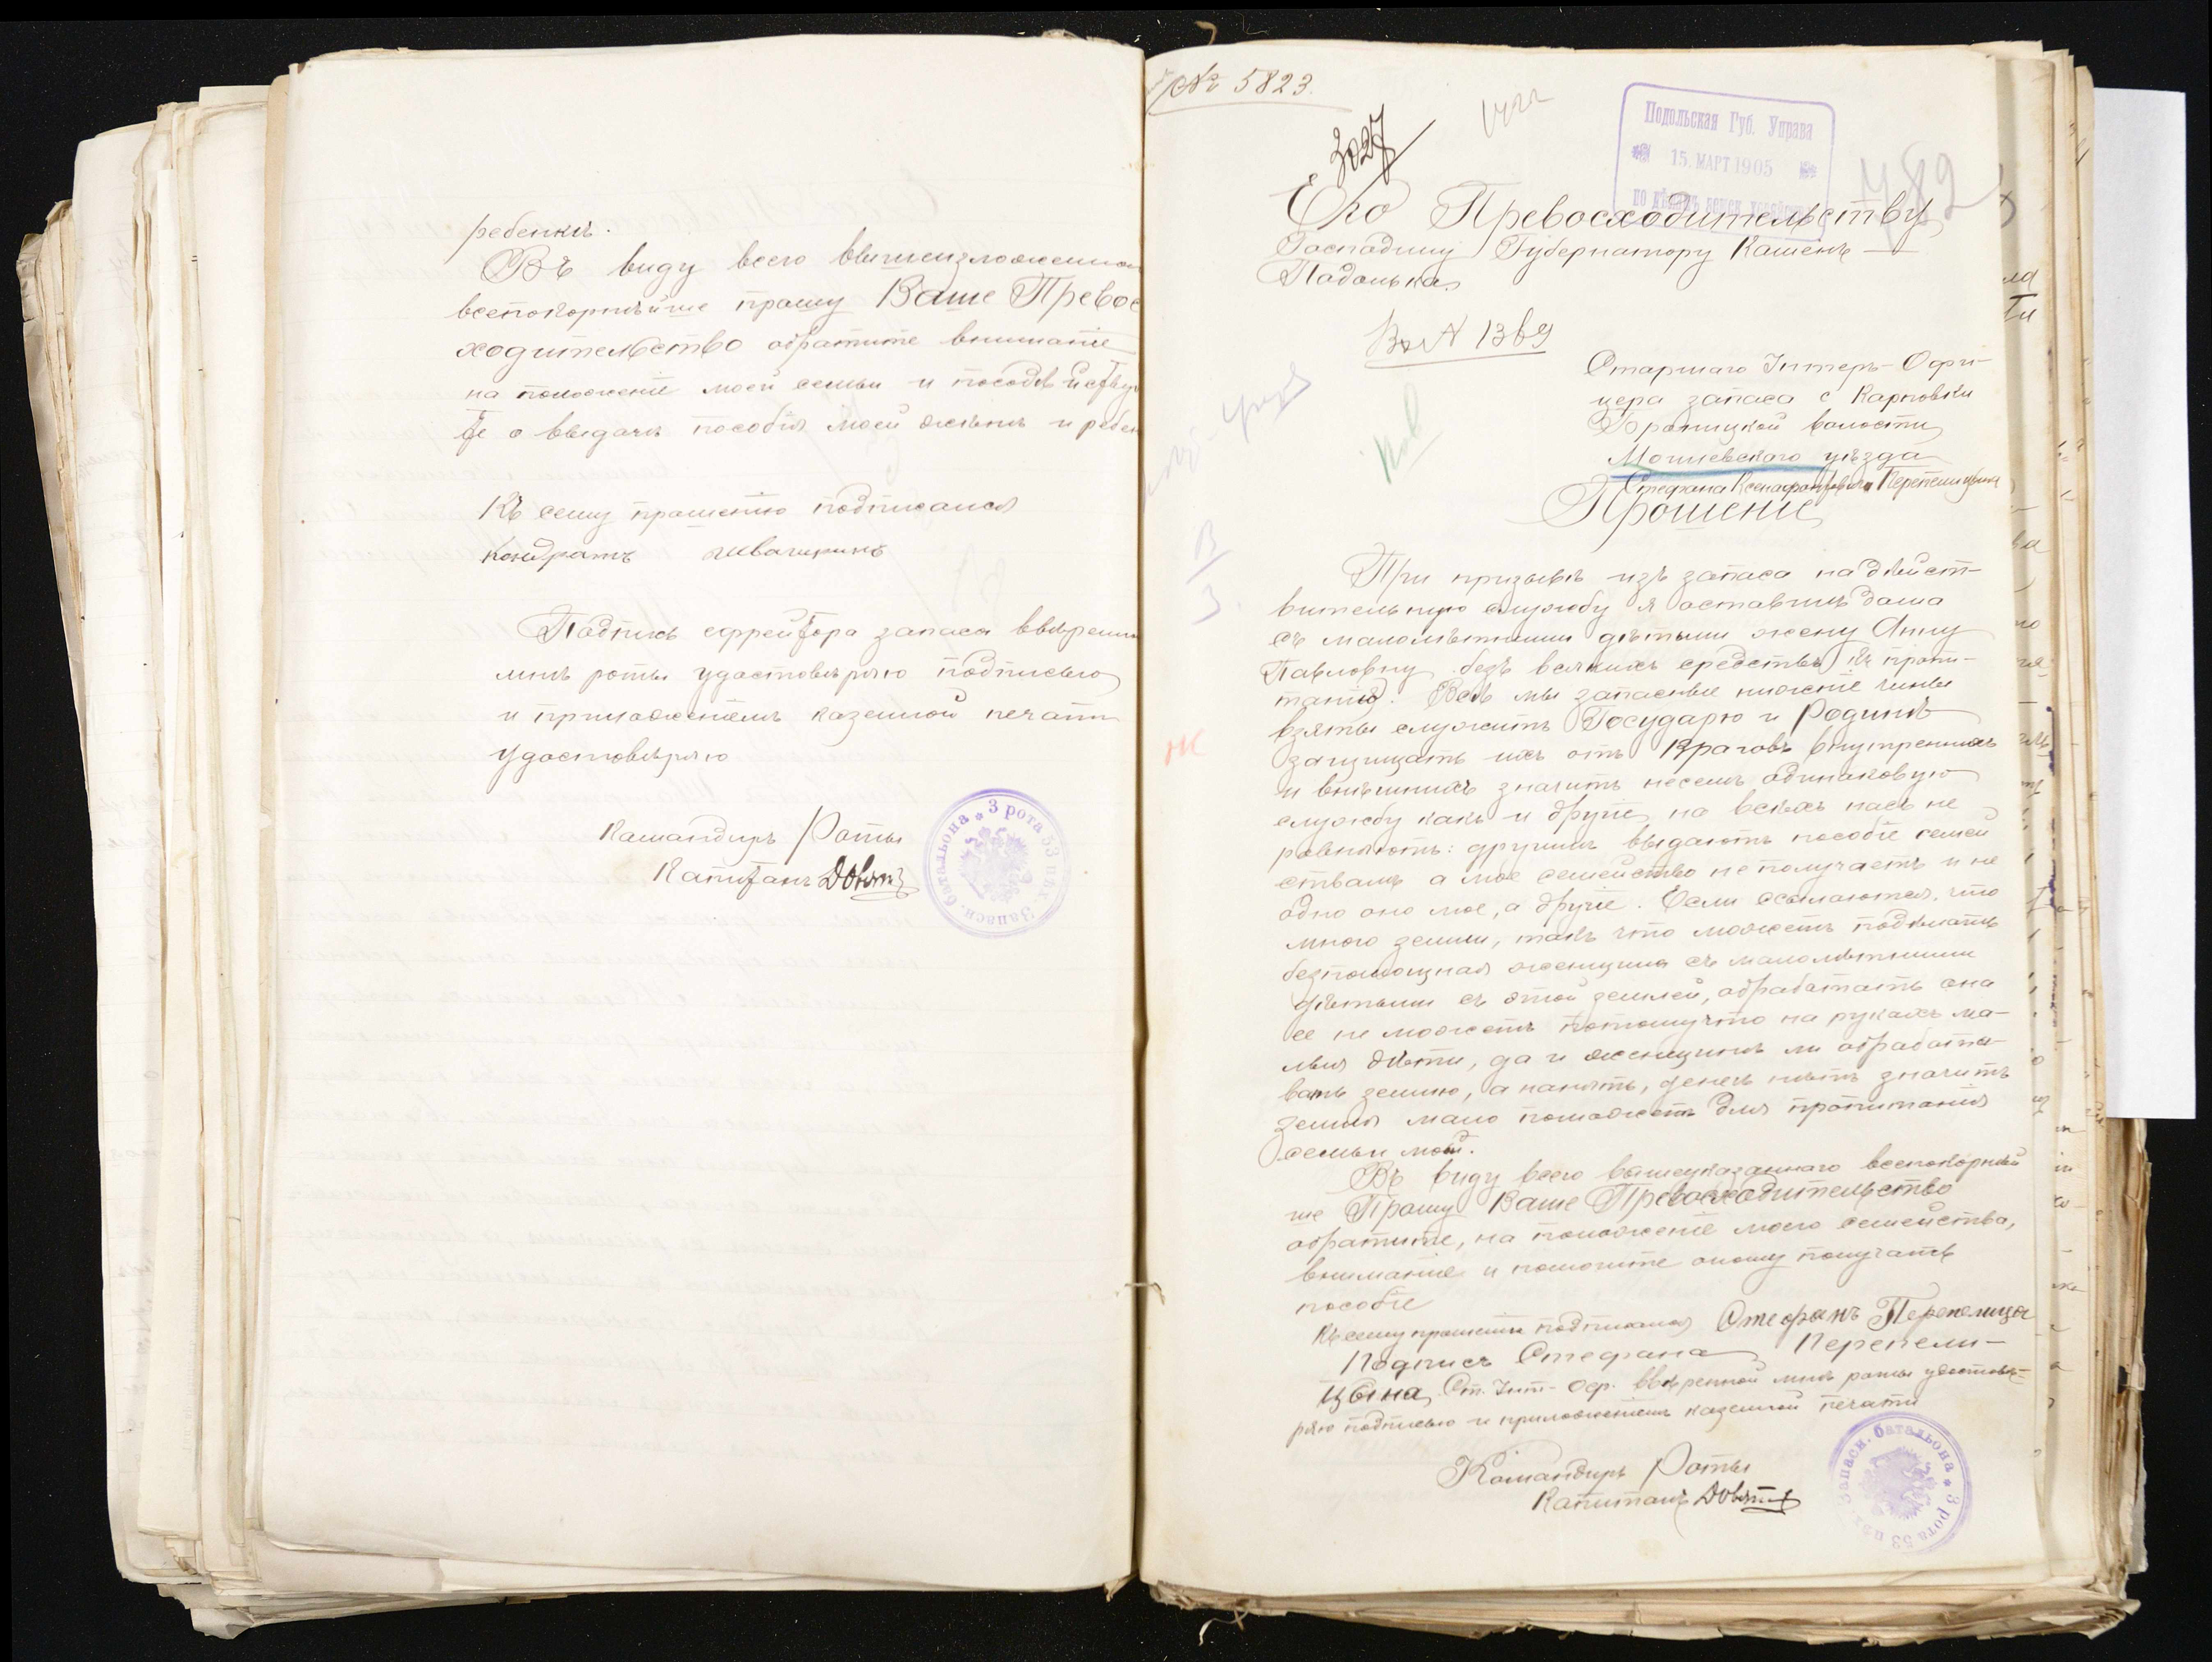 ребенкѣ.
Въ виду всего вышеизложенна
всепокорнѣйше прошу Ваше Превос
ходительство обратите внимание
на положеніе моей семьи и посодѣйству
те о выдачѣ пособія моей женѣ и ребен
Къ сему прошенію подписался
Кондратъ
Подпись ефрейтора запаса ввѣренн
мнѣ роты удостовѣряю подписью
и приложеніемъ казенной печати
удостовѣряю
Командиръ Роты
Капитанъ
3 рота 53 пѣх. Запасн. баталіона
№ 5823.
3027
1422
Подольская Губ. Управа
15. МАРТ 1905
по дѣламъ
482
Его Превосходительству
Господину Губернатору Каменъ-
Подолька
Вх № 1369
Старшаго Унтеръ-Офи-
цера запаса с Карповки
волости
Могилевскаго уѣзда
Стефана Ксенофонтовича Перепелицына
Прошеніе
При призывѣ изъ запаса на дѣйст-
вительную службу я оставилъ дома
съ малолѣтними дѣтьми жену Анну
Павловну безъ всякихъ средствъ къ пропи-
танію. Всѣ мы запасные нижніе чины
взяты служить Государю и Родинѣ
защищать ихъ отъ Враговъ внутреннихъ
и внѣшнихъ значитъ несемъ одинаковую
службу какъ и другіе, но всѣхъ насъ не
ровняютъ: другимъ выдаютъ пособіе семей
ствамъ а мое семейство не получаетъ и не
одно оно мое, а другіе. Если ссылаются, что
много земли, такъ что можетъ подѣлать
безпомощная женщина съ малолѣтними
дѣтьми съ этой землей, обработать она
ее не можетъ потомучто на рукахъ ма-
лыя дѣти, да и женщинѣ ли обработы-
вать землю, а нанять, денегъ нѣтъ значитъ
земля мало поможетъ для пропитанія
семьи моей.
Въ виду всего вышеуказаннаго всепокорнѣй
ше Прошу Ваше Превосходительство
обратите, на положеніе моего семейства,
вниманіе и помогите оному получать
пособіе
Къ сему прошенію подписался Стефанъ Перепелица
Подпись Стефана Перепели-
цына Ст. Унт-Оф. ввѣренной мнѣ роты удостовѣ-
ряю подписью и приложеніемъ казенной печати
Командиръ Роты
Капитанъ
3 рота 53 пѣх. Запасн. баталіона